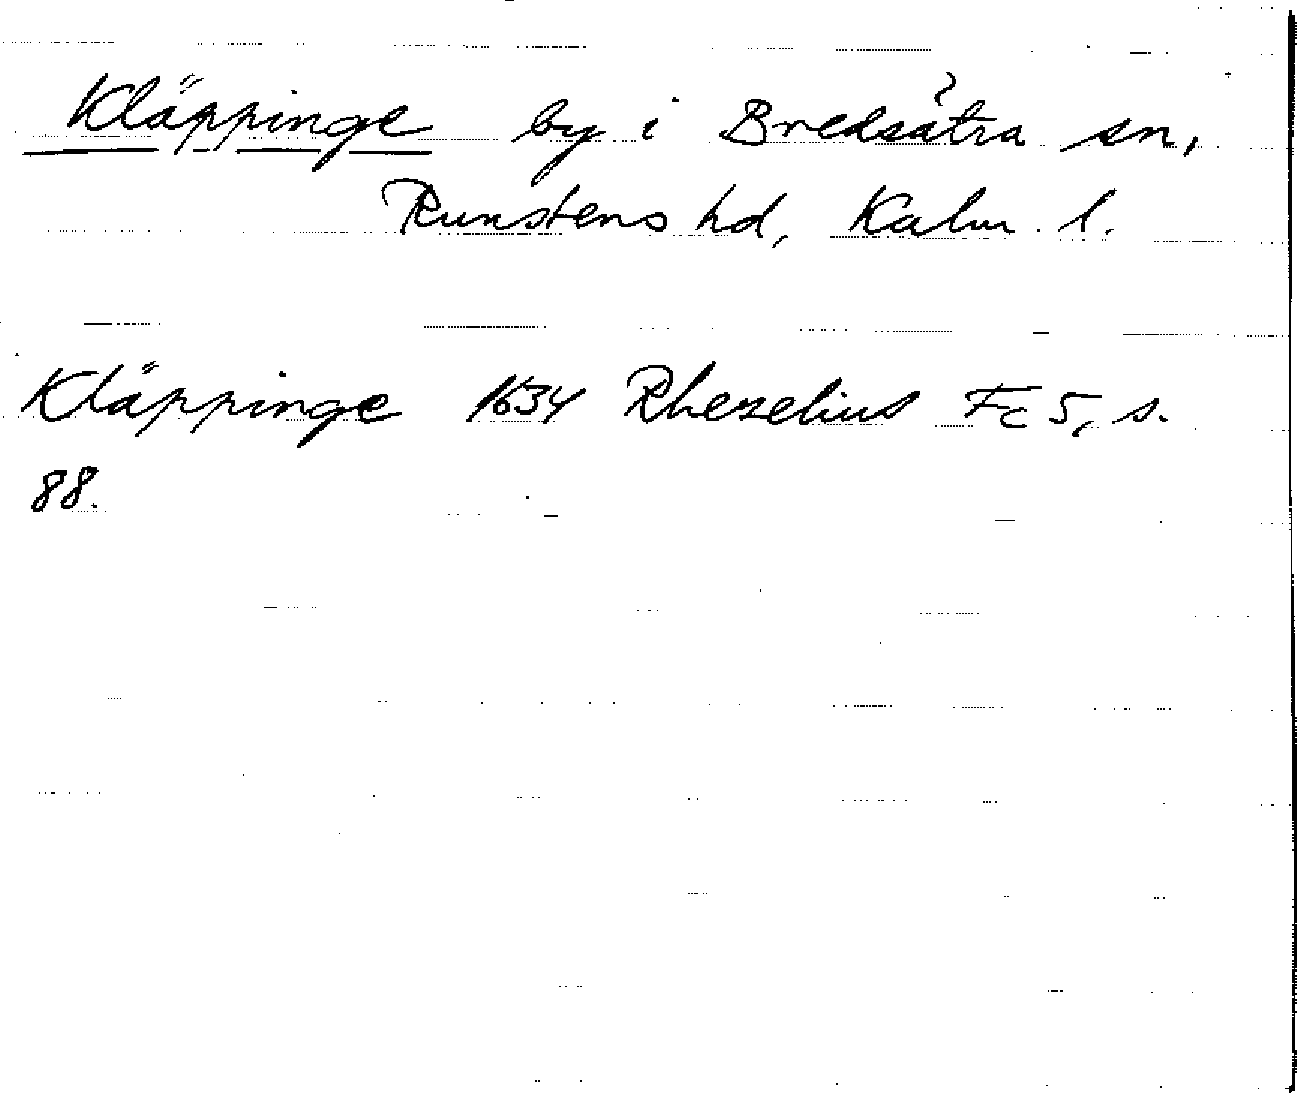 Kläppinge by i Bredsätra sn,
Runstens hd, Kalm. l.
Kläppinge 1634 Rhezelius Fc 5, s.
88.